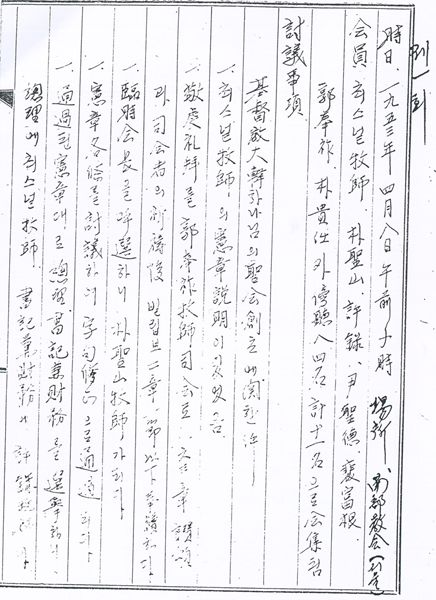 第一回
時日、一九五三年 四月八日 午前十時 場所、南部敎会(서울)
会員 최스넬牧師. 朴聖山. 許錄. 尹聖德. 裵富根.
郭奉祚. 朴貴任 外 傍聽人四名 計十一名으로会集됨
討議事項
基督敎大韓하나님의聖会創立에関한件
一. 최스넬牧師의憲章說明이있었음
一. 敬虔礼拜를郭奉祚牧師司会로 章讚頌
과 司会者의祈禱後 빌립보二章 節以下奉讀하다
一. 臨時会長을呼選하니 朴聖山牧師가되다
一. 憲章各條를討議하여字句修正으로通過되다
一. 通過된憲章대로 總理、書記兼財務를選擧하니
總理에최스넬牧師. 書記兼財務에許錄